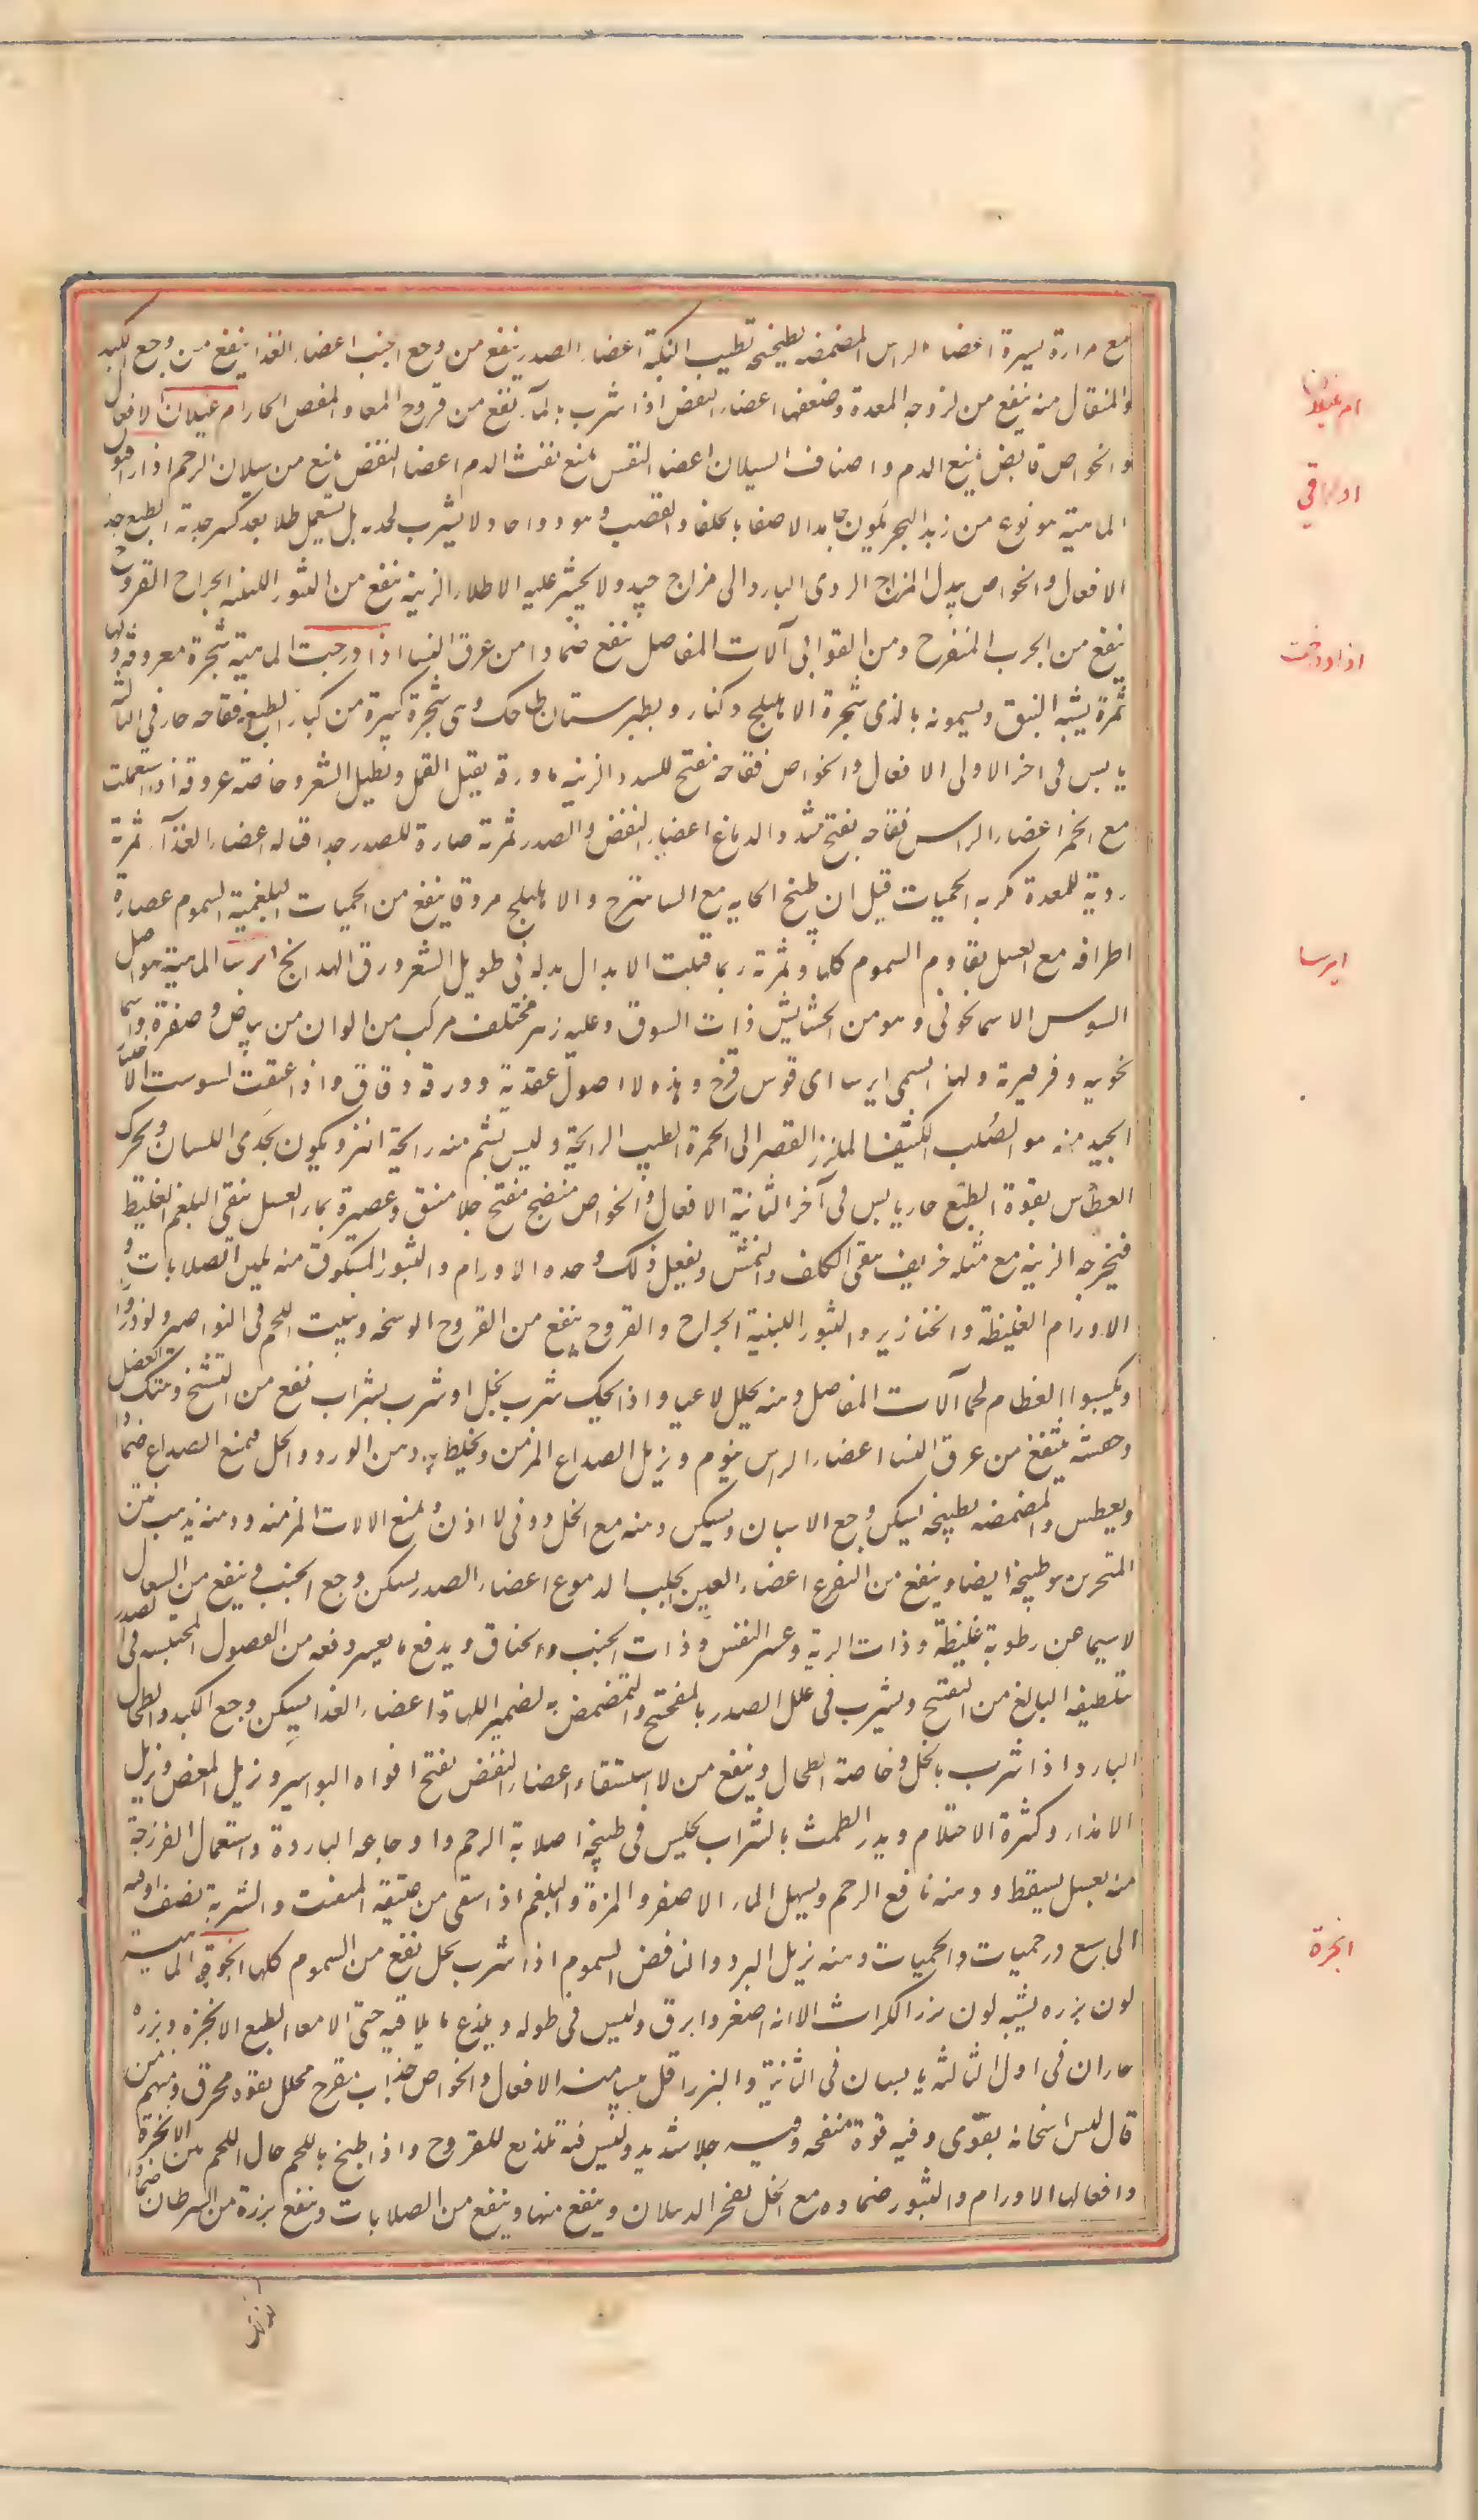 مع مرارة يسيرة اعضاء الراس المضمضة بطبيخه تطيب النكهة اعضاء الصدر ينفع من وجع الجنب اعضاء الغذا ينفع من وجع الكبد
والمثقال منه ينفع من لزوجه المعدة وضعفها اعضاء النفض اذا شرب بالماء نفع من قروح المعا والمغص الحار ام غيلان الافعال
والخواص قابض يمنع الدم واصناف السيلان اعضا النفس يمنع نفث الدم اعضا النفض يمنع من سيلان الرحم ادارافيون
الماهية هو نوع من زبد البحر يكون جامد الاصفا بالحلفا والقصب وهو دوا حاد ولا يشرب لحدته بل يستعمل طلا بعد كسر حدته الطبع حار
الافعال والخواص يبدل المزاج الردى البارد الى مزاج جيد ولا يجسر عليه الا طلاء الزينة ينفع من البثور اللبنيه الجراح القروح
ينفع من الجرب المتقرح ومن القوابى آلات المفاصل ينفع ضمادا من عرق النسا اذادرخت الماهية شجرة معروفة ولها
ثمرة يشبه النبق ويسمونه بالرى شجرة الاهليلج وكنار وبطبرستان طاحك وهى شجرة كبيرة من كبار الطبع فقاحه حار فى الثالثة
يابس فى اخر الاولى الافعال والخواص فقاحه مفتح للسدد الزينه ماء ورقه يقتل القمل ويطيل الشعر وخاصة عروقه اذا استعملت
مع الخمر اعضاء الراس فقاحه يفتح سدد الدماغ اعضاء النفض والصدر ثمرته ضارة للصدر جدا قتاله اعضاء الغذآء ثمرته
ردية للمعدة مكربه الحميات قيل ان طبيخ لحايه مع الشاهترج والاهليلج مروقا ينفع من الحميات البلغمية السموم عصارة
اطرافه مع العسل يقاوم السموم كلها وثمرته ربما قتلت الابدال بدله فى تطويل الشعر ورق الشهدانج ايرسا الماهية هو اصل
السوسن الاسمانجونى وهو من الحشايش ذات السوق وعليه زهر مختلف مركب من الوان من بياض وصفرة واسما
نجونيه وفرفيرية ولهذا سمى ايرسا اى قوس قزح وهذه الاصول عقدية وورقه دقاق واذا عتقت تسوست الاختيار
الجيد منه هو الصلب الكثيف الملزز القصير الى الحمرة الطيب الرايحة وليس يشم منه رايحة النز ويكون يحذى اللسان ويحرك
العطاس بقوة الطبع حار يابس فى آخر الثانية الافعال والخواص منضج مفتح جلا منق وعصيرة بماء العسل ينقى البلغم الغليظ
فيخرجه الزينه مع مثله خربق ينقى الكلف والنمش ويفعل ذلك وحده الاورام والبثور المسلوق منه يلين الصلابات و
الاورام الغليظة والخنازير والبثور اللبنية الجراح والقروح ينفع من القروح الوسخه وينبت اللحم فى النواصير ولو ذرورا
ويكسوا العظام لحما آلات المفاصل دهنه يحلل الاعيا واذا شرب بخل او شرب بشراب نفع من التشنج وهتك العضل
وحقنته ينفع من عرق النسا اعضاء الراس ينوم ويزيل الصداع المزمن ويخلط به دهن الورد والخل فيمنع الصداع ضمادا
ويعطس والمضمضه بطبيخه يسكن وجع الاسنان ويسكن دهنه مع الخل دوى الاذن ويمنع النزلات المزمنه ودهنه يذهب نتن
المنخرين وطبيخه ايضا وينفع من القروع اعضاء العين يجلب الدموع اعضاء الصدر يسكن وجع الجنب وينفع من السعال
لا سيما عن رطوبة غليظة وذات الرية وعسر النفس وذات الجنب والخناق ويدفع ما يعسر دفعه من الفصول المحتبسه فى الصدر
تلطيفه البالغ من التفتح ويشرب فى علل الصدر بالمفختج والتمضمض به لضمير اللهاة اعضاء الغذا يسكن وجع الكبد والطحال
البارد اذا شرب بالخل وخاصة الطحال وينفع من الاستسقاء اعضاء النفض يفتح افواه البواسير ويزيل المغص ويزيل
الامذاء وكثرة الاحتلام ويدر الطمث بالشراب يجلس فى طبيخه لصلابة الرحم واوجاعه الباردة واستعمال الفرزجة
منه بعسل يسقط ودهنه نافع الرحم ويسهل الماء الاصفر والمرة والبلغم اذا سقى من عتيقه المتفتت والشربة نصف اوقيه
الى سبع درخميات والحميات دهنه يزيل البرد والنافض السموم اذا شرب بخل نفع من السموم كلها انجرة الماهية
لون بزره يشبه لون بزر الكراث الا انه اصغر وابرق وليس فى طوله ويلذع ما يلاقيه حتى الامعا الطبع الانجره وبزره
حاران فى اول الثالثه يابسان فى الثانية والبزر اقل يبسا منه الافعال والخواص جذاب مقرح محلل بقوة محرق ومنهم من
قال ليس اسخانه بقوى وفيه قوة منفخه وفيه جلا شديد وليس فيه تلذيع للقروح واذا طبخ باللحم حال اللحم بين الانجرة
وافعالها الاورام والبثور ضماده مع الخل يفجر الدبيلات وينفع منها وينفع من الصلابات وينفع بزره من السرطان ضمادا
ام غيلان
ادارافى
اذادرخت
ايرسا
انجرة